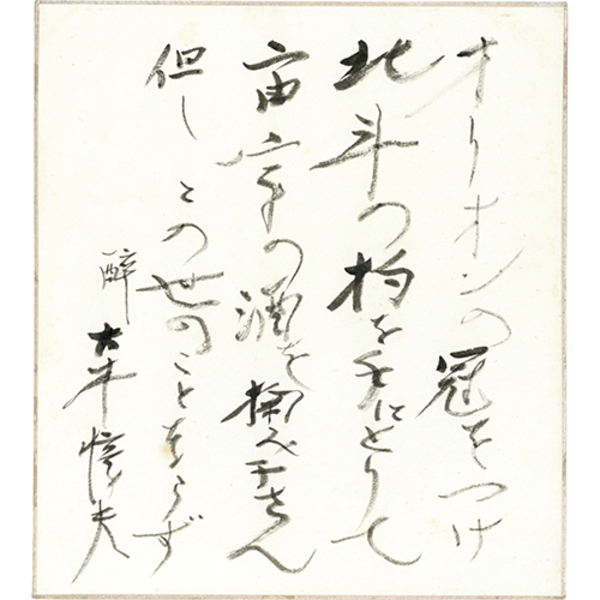 オリオンの冠をつけ
北斗の杓を手にとりて
宙宇の酒を掬へ干さん
但しこの世のことならず
酔 大牛